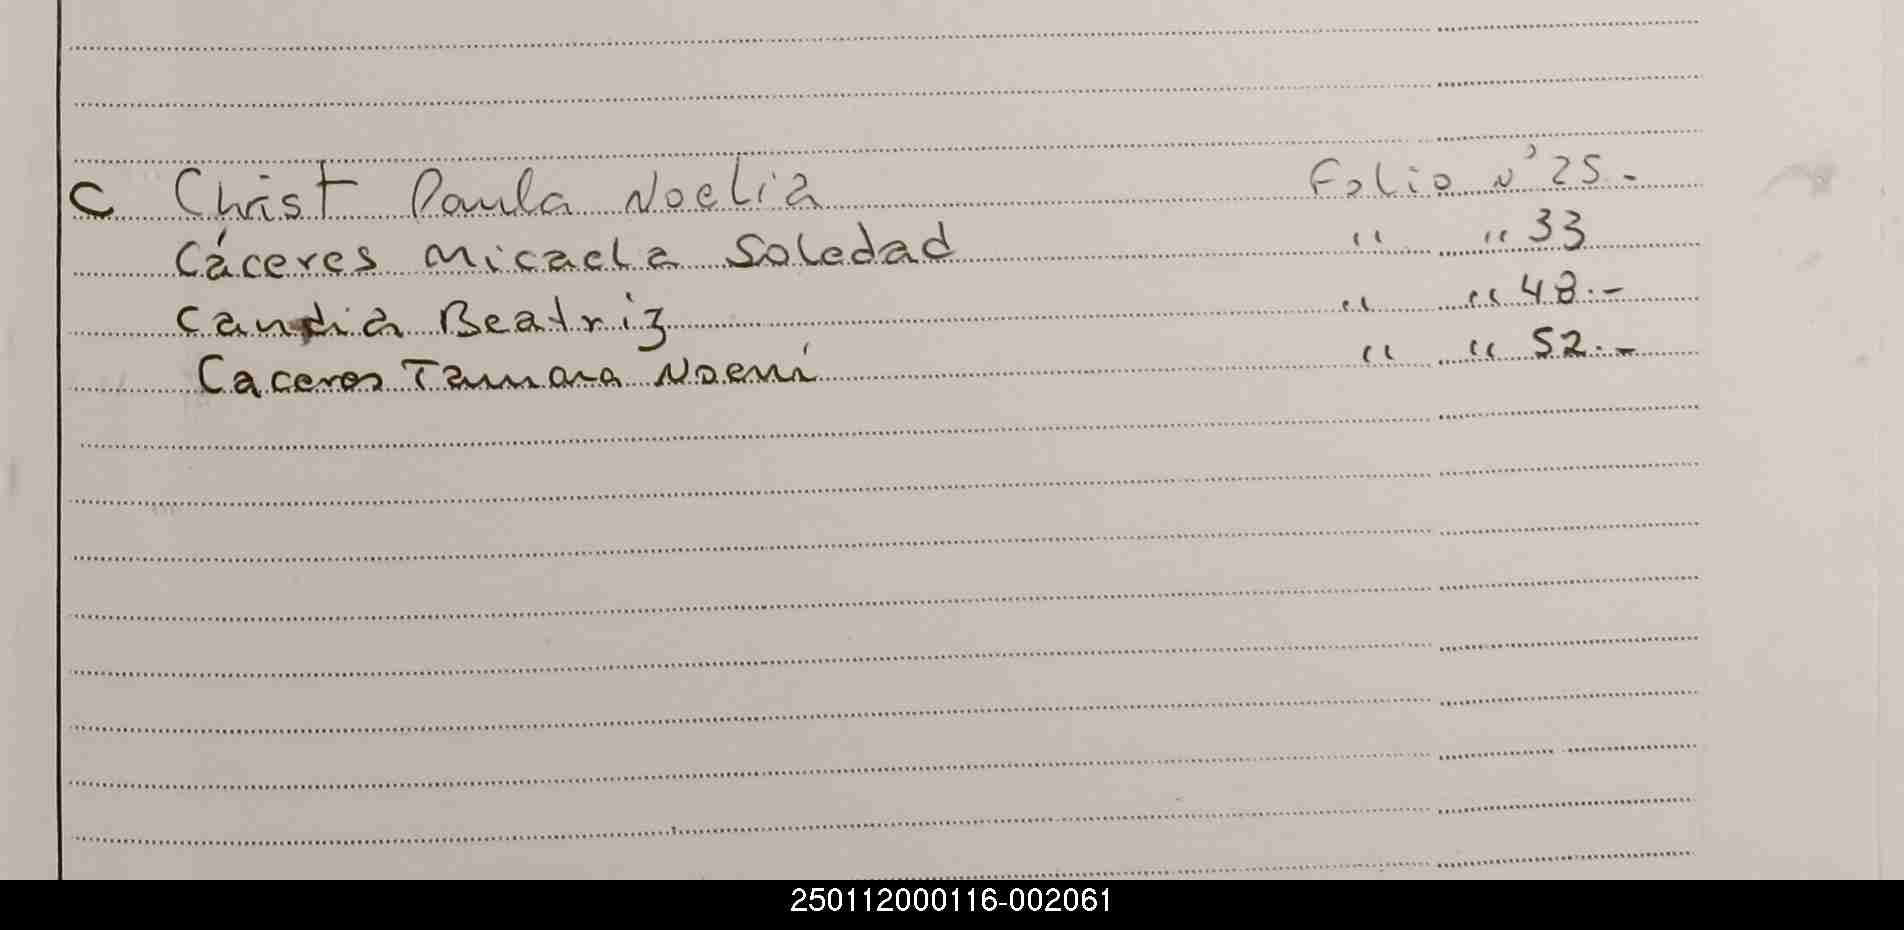 C Christ Paula Noelia Folio N° 25.-
Cáceres Micaela Soledad " " 33
Candia Beatriz " " 48.-
Caceres Tamara Noemí " " 52.-
250112000116-002061